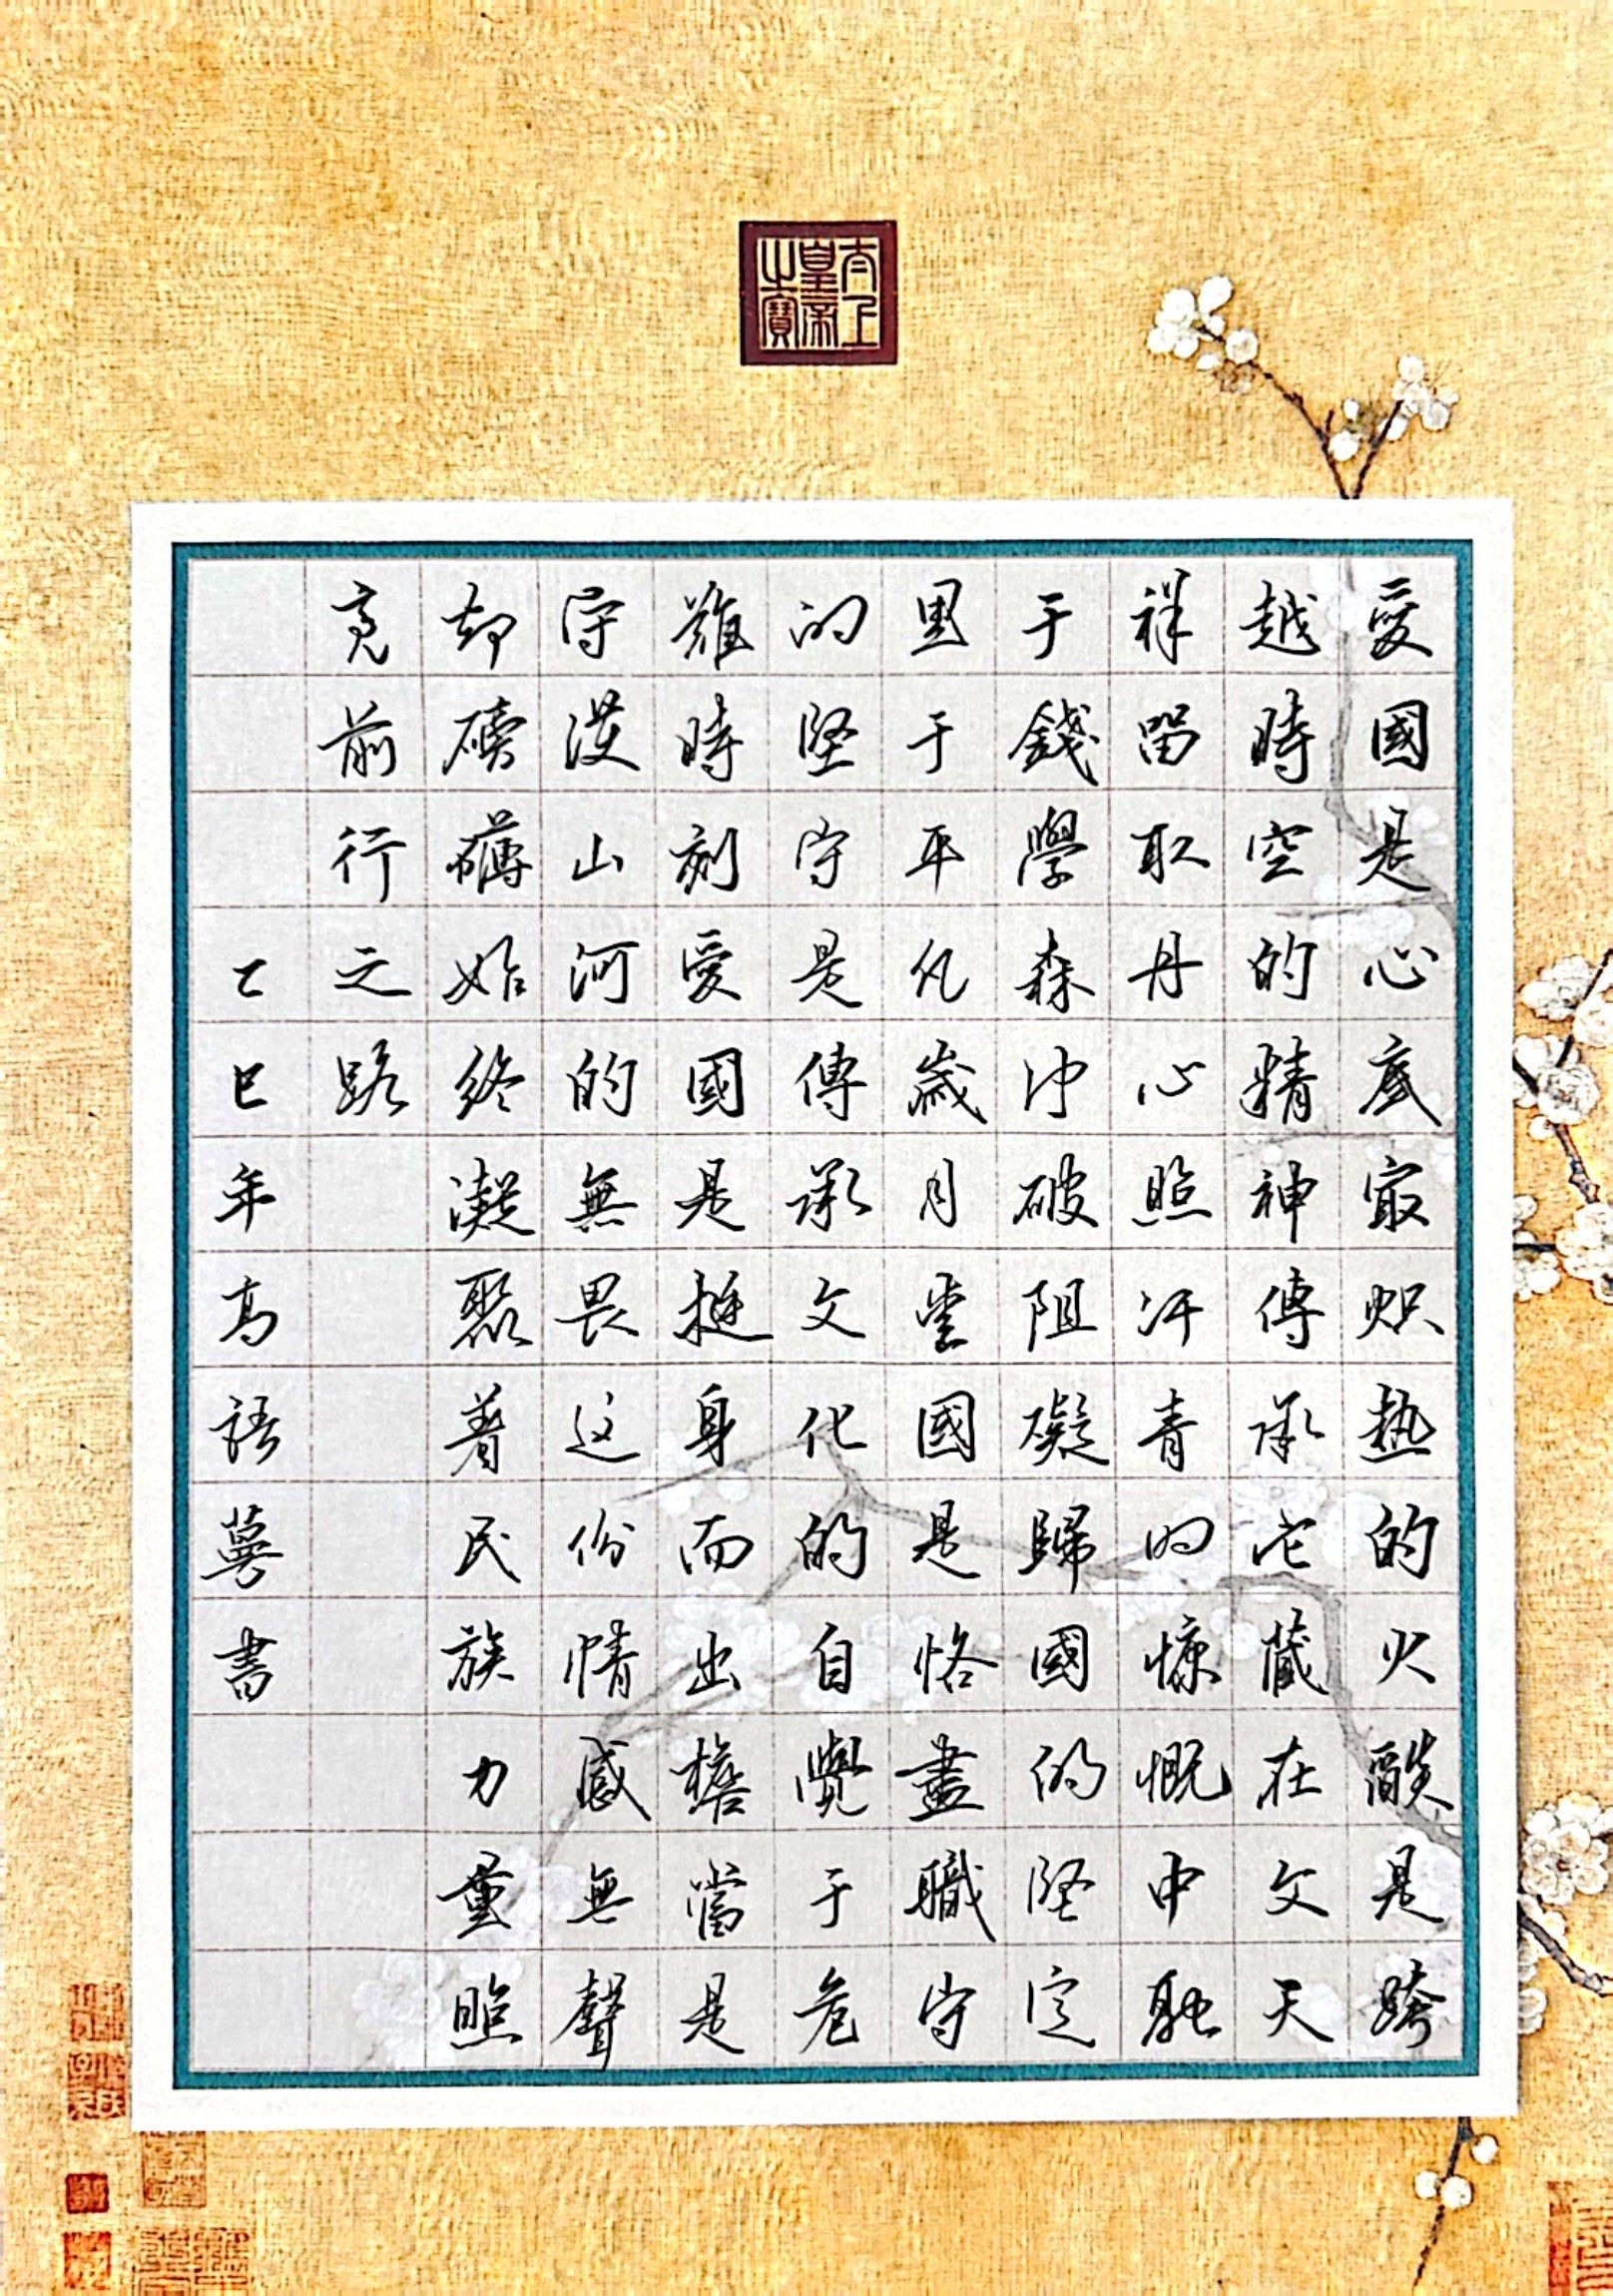 太上
皇帝
之寶
愛國是心底最炽热的火燄是跨
越時空的精神傳承它藏在文天
祥留取丹心照汗青的慷慨中融
于錢學森冲破阻礙歸國的堅定
里于平凡歲月愛國是恪盡職守
的堅守是傳承文化的自覺于危
難時刻愛國是挺身而出擔當是
守護山河的無畏这份情感無聲
却磅礴始终凝聚着民族力量照
亮前行之路
乙巳年高語蔓書